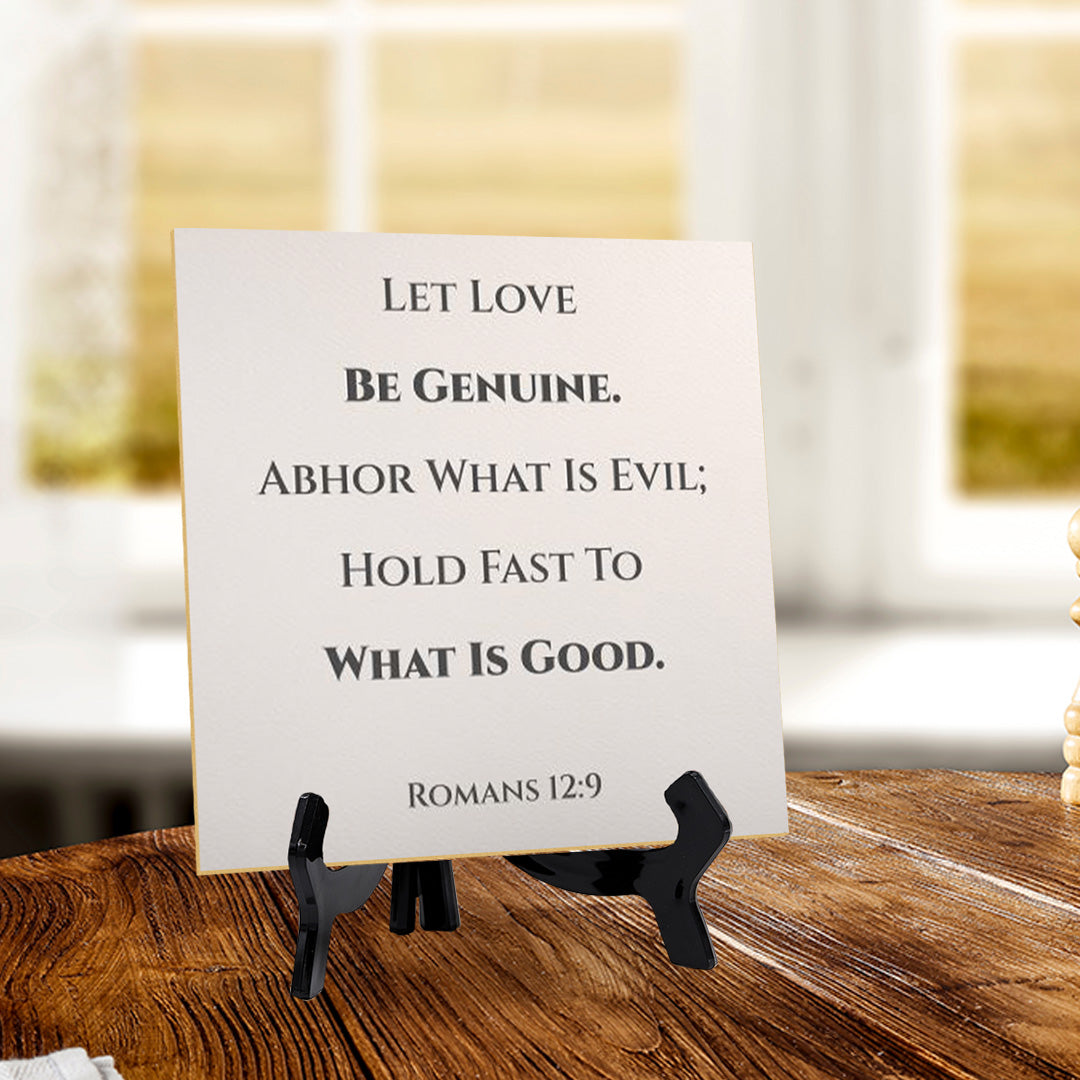 Let Love
Be Genuine.
Abhor What Is Evil;
Hold Fast To
What Is Good.
Romans 12:9